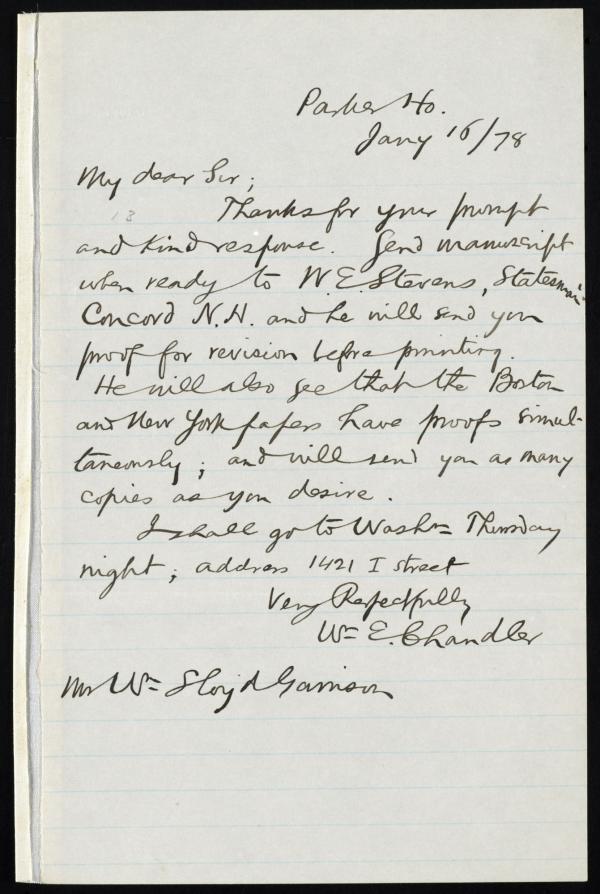 Parker Ho.
Jany 16/78
My dear Sir;
13
Thanks for your prompt
and kind response. Send manuscript
when ready to W. E. Stevens, Statesman
Concord N.H. and he will send you
proof for revision before printing.
He will also see that the Boston
and New York papers have proofs simul-
taneously; and will send you as many
copies as you desire.
I shall go to Washn Thursday
night; address 1421 I street
Very Respectfully
Wm E. Chandler
Mr Wm Lloyd Garrison